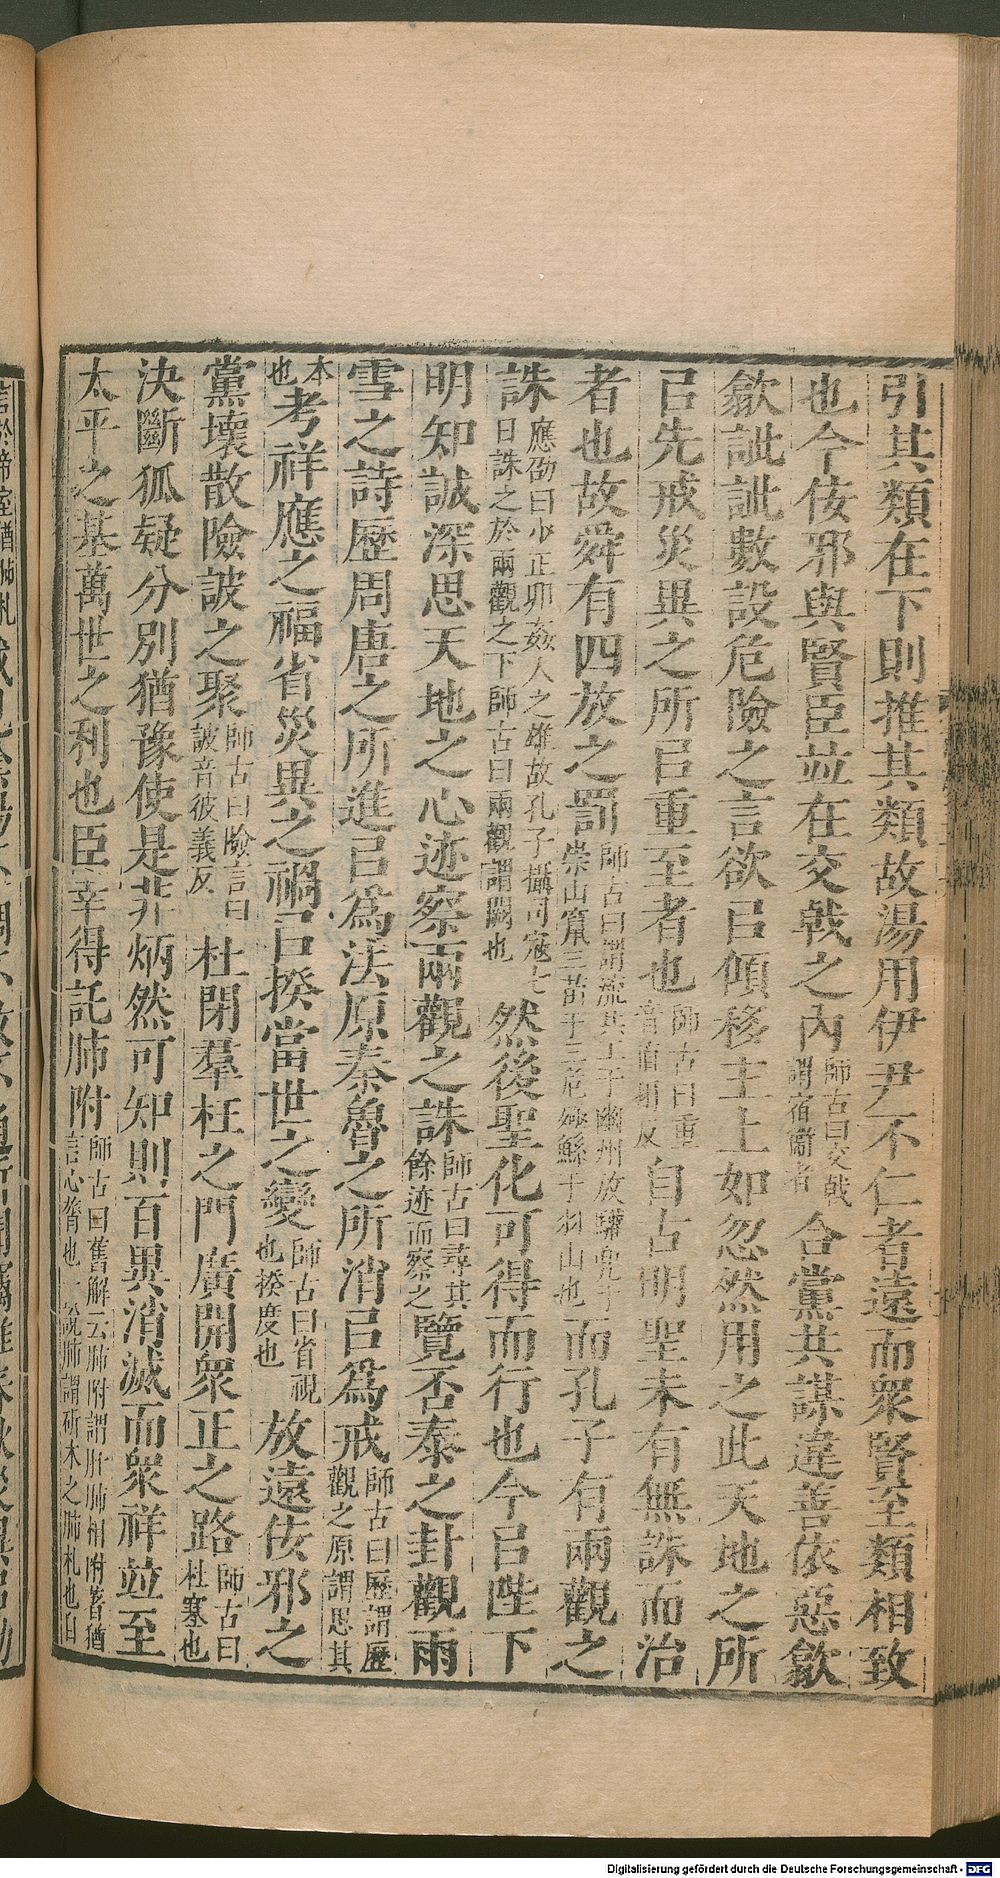 引其類在下則推其類故湯用伊尹不仁者遠而衆賢至類相致
也今佞邪與賢臣竝在交戟之內師古曰交戟謂宿衞者合黨共謀違善依惡歙
歙訿訿數設危險之言欲㠯傾移主上如忽然用之此天地之所
㠯先戒災異之所㠯重至者也師古曰重音直用反自古明聖未有無誅而治
者也故舜有四放之罰師古曰謂流共工于幽州放驩兜于崇山竄三苗于三危殛鯀于羽山也而孔子有兩觀之
誅應劭曰少正卯姦人之雄故孔子攝司寇七日誅之於兩觀之下師古曰兩觀謂闕也然後聖化可得而行也今㠯陛下
明知誠深思天地之心迹察兩觀之誅師古曰尋其餘迹而察之覽否泰之卦觀雨
雪之詩歷周唐之所進㠯爲法原秦魯之所消㠯爲戒師古曰歷謂歷觀之原謂思其
本也考祥應之福省災異之禍㠯揆當世之變師古曰省視也揆度也放遠佞邪之
黨壞散險詖之聚師古曰險言曰詖音彼義反杜閉羣枉之門廣開衆正之路師古曰杜塞也
決斷狐疑分別猶豫使是非炳然可知則百異消滅而衆祥竝至
太平之基萬世之利也臣幸得託肺附師古曰舊解云肺附謂肝肺相附著猶言心膂也一說肺謂斫木之肺札也自
言於帝室猶肺札
Digitalisierung gefördert durch die Deutsche Forschungsgemeinschaft - DFG